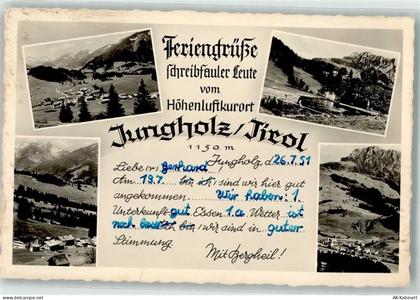 Feriengrüße
schreibfauler Leute
vom
Höhenluftkurort
Jungholz/Tirol
1150 m
Liebe(r) Gerhard! Jungholz, d. 26.7.51
Am 19.7. bin ich, sind wir hier gut
angekommen. Wir haben: 1.
Unterkunft gut Essen 1.a. Wetter ist
noch bin, wir sind in guter
Stimmung Mit Bergheil!
AK-Kabinett